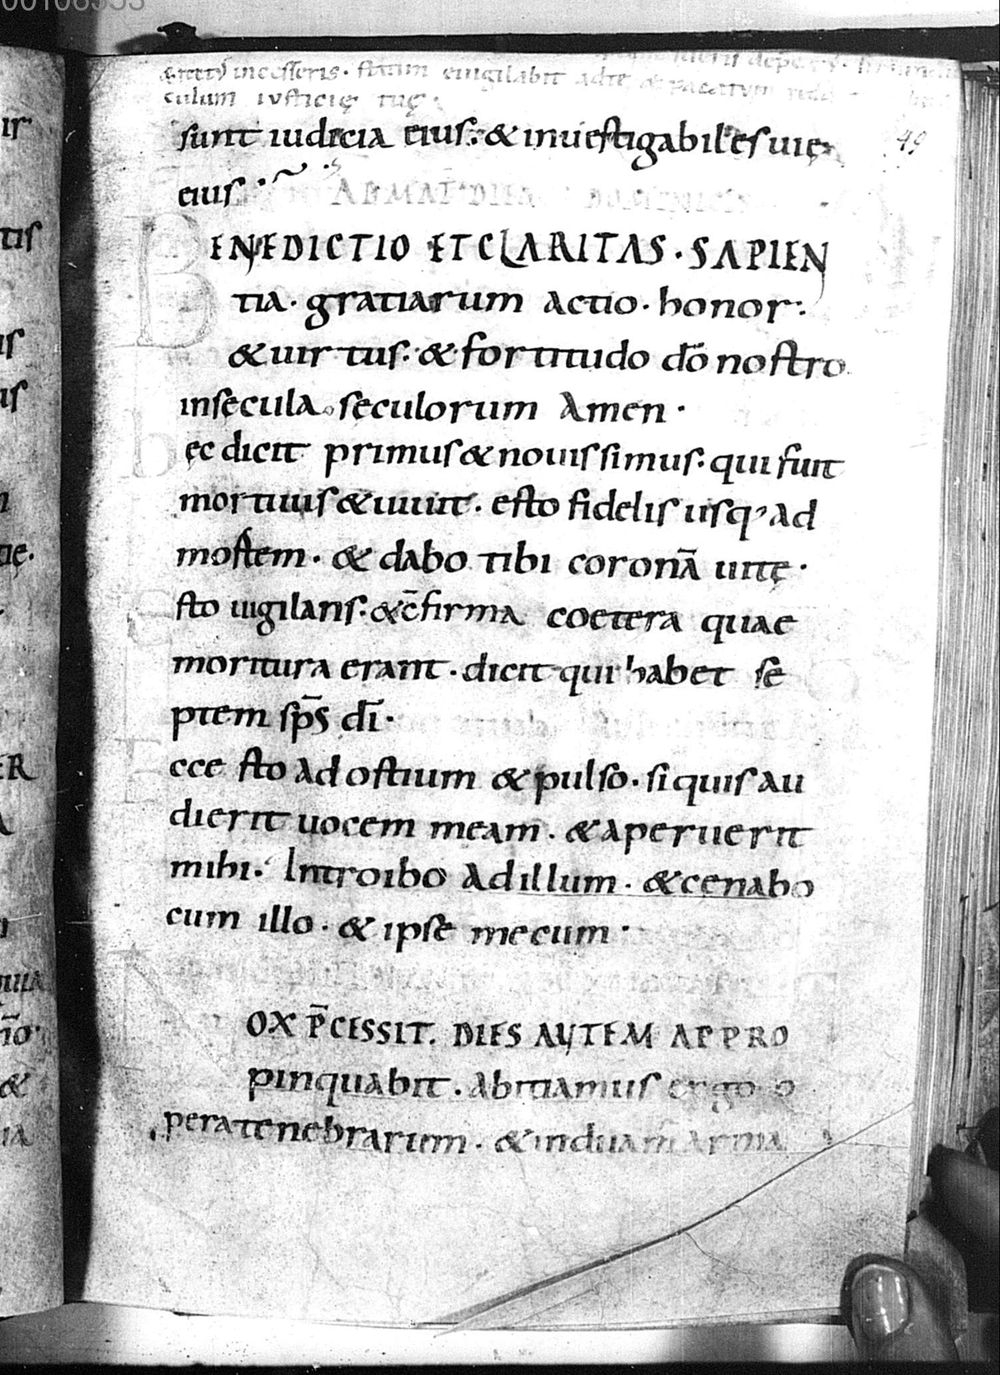 00108953
incesseris · statim euigilabit ad te &
culum iusticie tuę
49
sunt iudicia eius · & inuestigabiles uię
eius ·
AD MAT DIEB DOMINICIS
BENEDICTIO ET CLARITAS · SAPIEN
tia · gratiarum actio · honor ·
& uirtus · & fortitudo dō nostro
in secula seculorum Amen ·
hęc dicit primus & nouissimus · qui fuit
mortuus & uiuit · esto fidelis usq' ad
mortem · & dabo tibi coronā uitę ·
Esto uigilans · & c̄firma coetera quae
moritura erant · dicit qui habet se
ptem sp̄s dī ·
Ecce sto ad ostium & pulso · si quis au
dierit uocem meam · & aperuerit
mihi · Introibo ad illum · & cenabo
cum illo · & ipse mecum ·
NOX P̄CESSIT. DIES AUTEM APPRO
pinquabit . Abitiamus ergo o
pera tenebrarum · & induam̄ arma
ir
tis
is
is
ER
A
quia
&